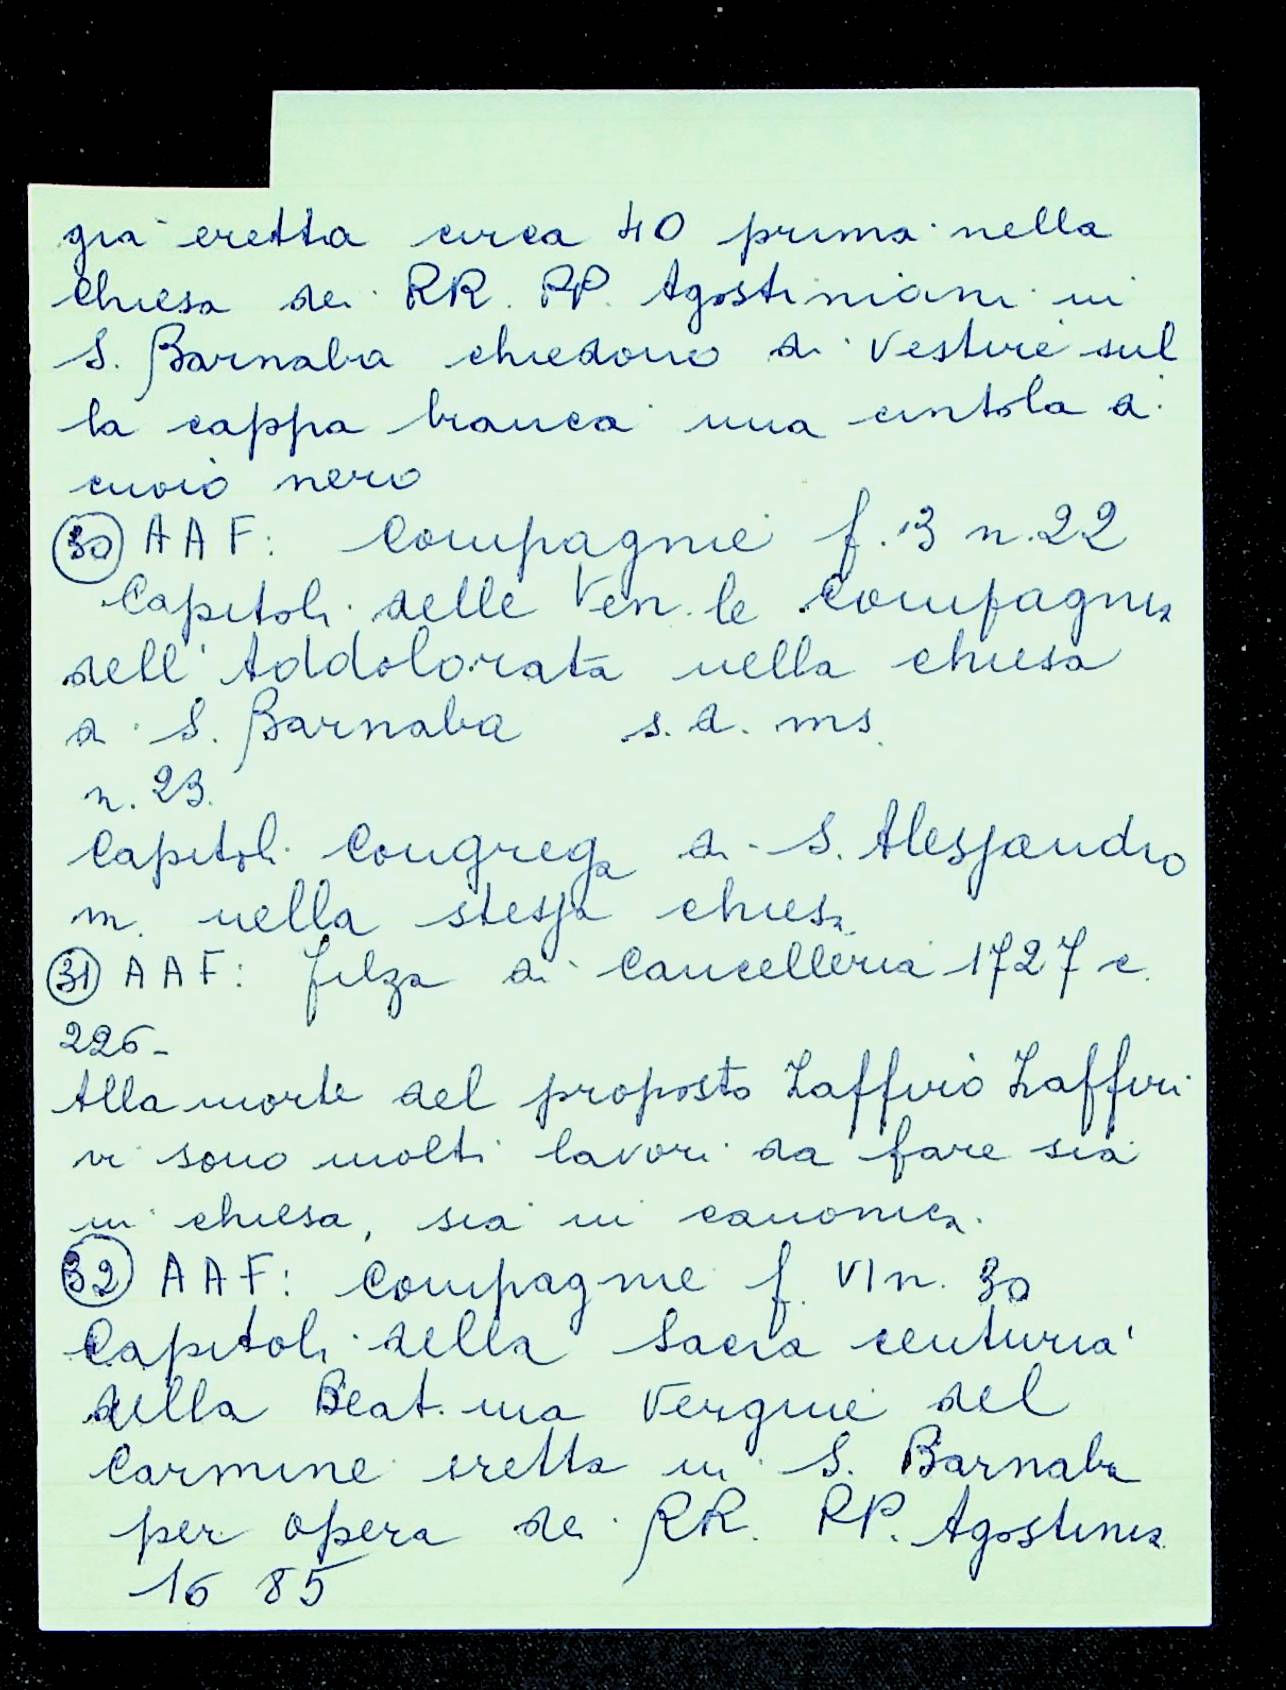 già eretta circa 40 prima nella
chiesa dei RR. PP. Agostiniani in
S. Barnaba chiedono di vestire sul
la cappa bianca una cintola di
cuoio nero
30 AAF: Compagnie f. 3 n. 22
Capitoli delle Ven. le Compagnia
dell'Addolorata nella chiesa
di S. Barnaba s.d. ms.
n. 23.
Capitoli Congrega di S. Alessandro
m. nella stessa chiesa
31 AAF: filza di Cancelleria 1727 c.
226-
Alla morte del proposto Zaffiro Zaffiri
vi sono molti lavori da fare sia
in chiesa, sia in canonica.
32 AAF: Compagnie f. VI n. 30
Capitoli della Sacra centuria
della Beat.ma Vergine del
Carmine eretta in S. Barnaba
per opera dei RR. PP. Agostinia
1685